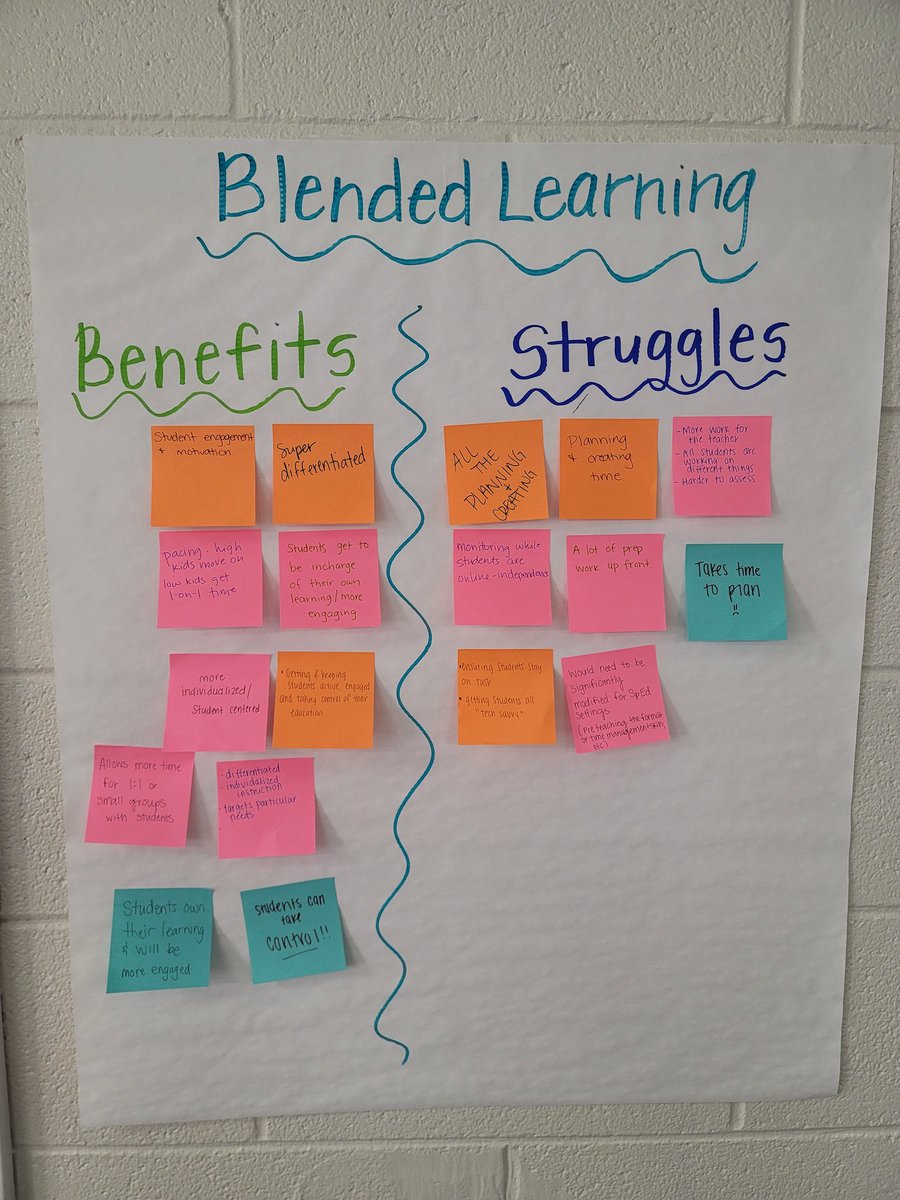 Blended Learning
Benefits
Struggles
Student engagement
& motivation.
Super
differentiated
pacing - high
kids move on
low kids get
1-on-1 time
Students get to
be incharge
of their own
learning/more
engaging
more
individualized/
Student centered
• Getting & keeping
students active, engaged
and taking control of their
education
Allows more time
for 1:1 or
small groups
with students
- differentiated
- individualized
instruction
- targets particular
needs
Students own
their learning
& will be
more engaged
students can
take
control!!
ALL
THE
PLANNING
+
CREATING
Planning
& creating
time
- More work for
the teacher
- All students are
working on
different things
- Harder to assess
monitoring while
students are
online - independence
A lot of prep
work up front.
Takes time
to plan
!!
• ensuring students stay
on task
• getting students all
"tech savvy"
Would need to be
significantly
modified for SpEd
settings
(pre teaching the format
or time management skills,
etc)